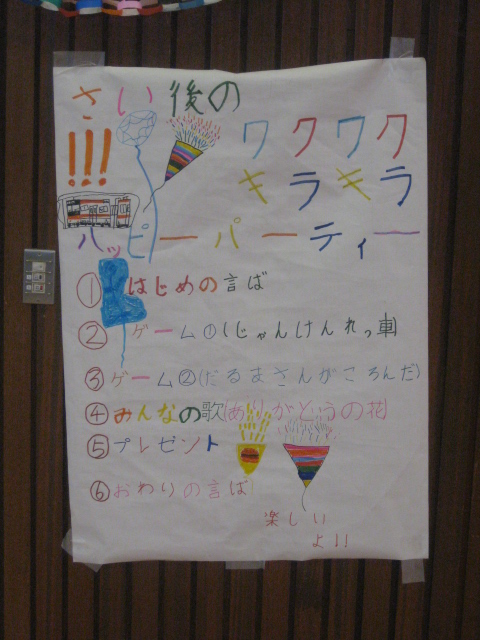 さい後の
!!!
ワクワク
キラキラ
ハッピーパーティー
①はじめの言ば
②ゲーム①(じゃんけんれっ車)
③ゲーム②(だるまさんがころんだ)
④みんなの歌(ありがとうの花)
⑤プレゼント
⑥おわりの言ば
楽しい
よ!!